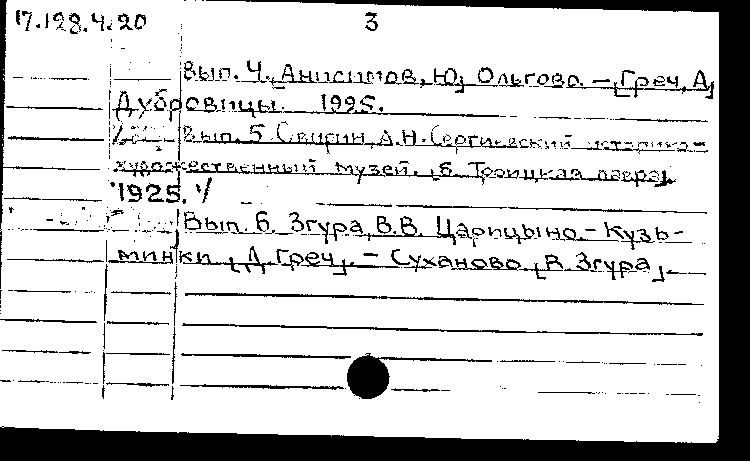 17.128.4.20 3
Вып. 4. [Анисимов, Ю] Ольгово. – [Греч, А]
Дубровицы. 1925.
Вып. 5 Свирин, А.Н. Сергиевский историко-
художественный музей. [б. Троицкая лавра].
1925.
Вып. 6. Згура, В.В. Царицыно. – Кузь-
минки [А. Греч]. – Суханово [В. Згура].